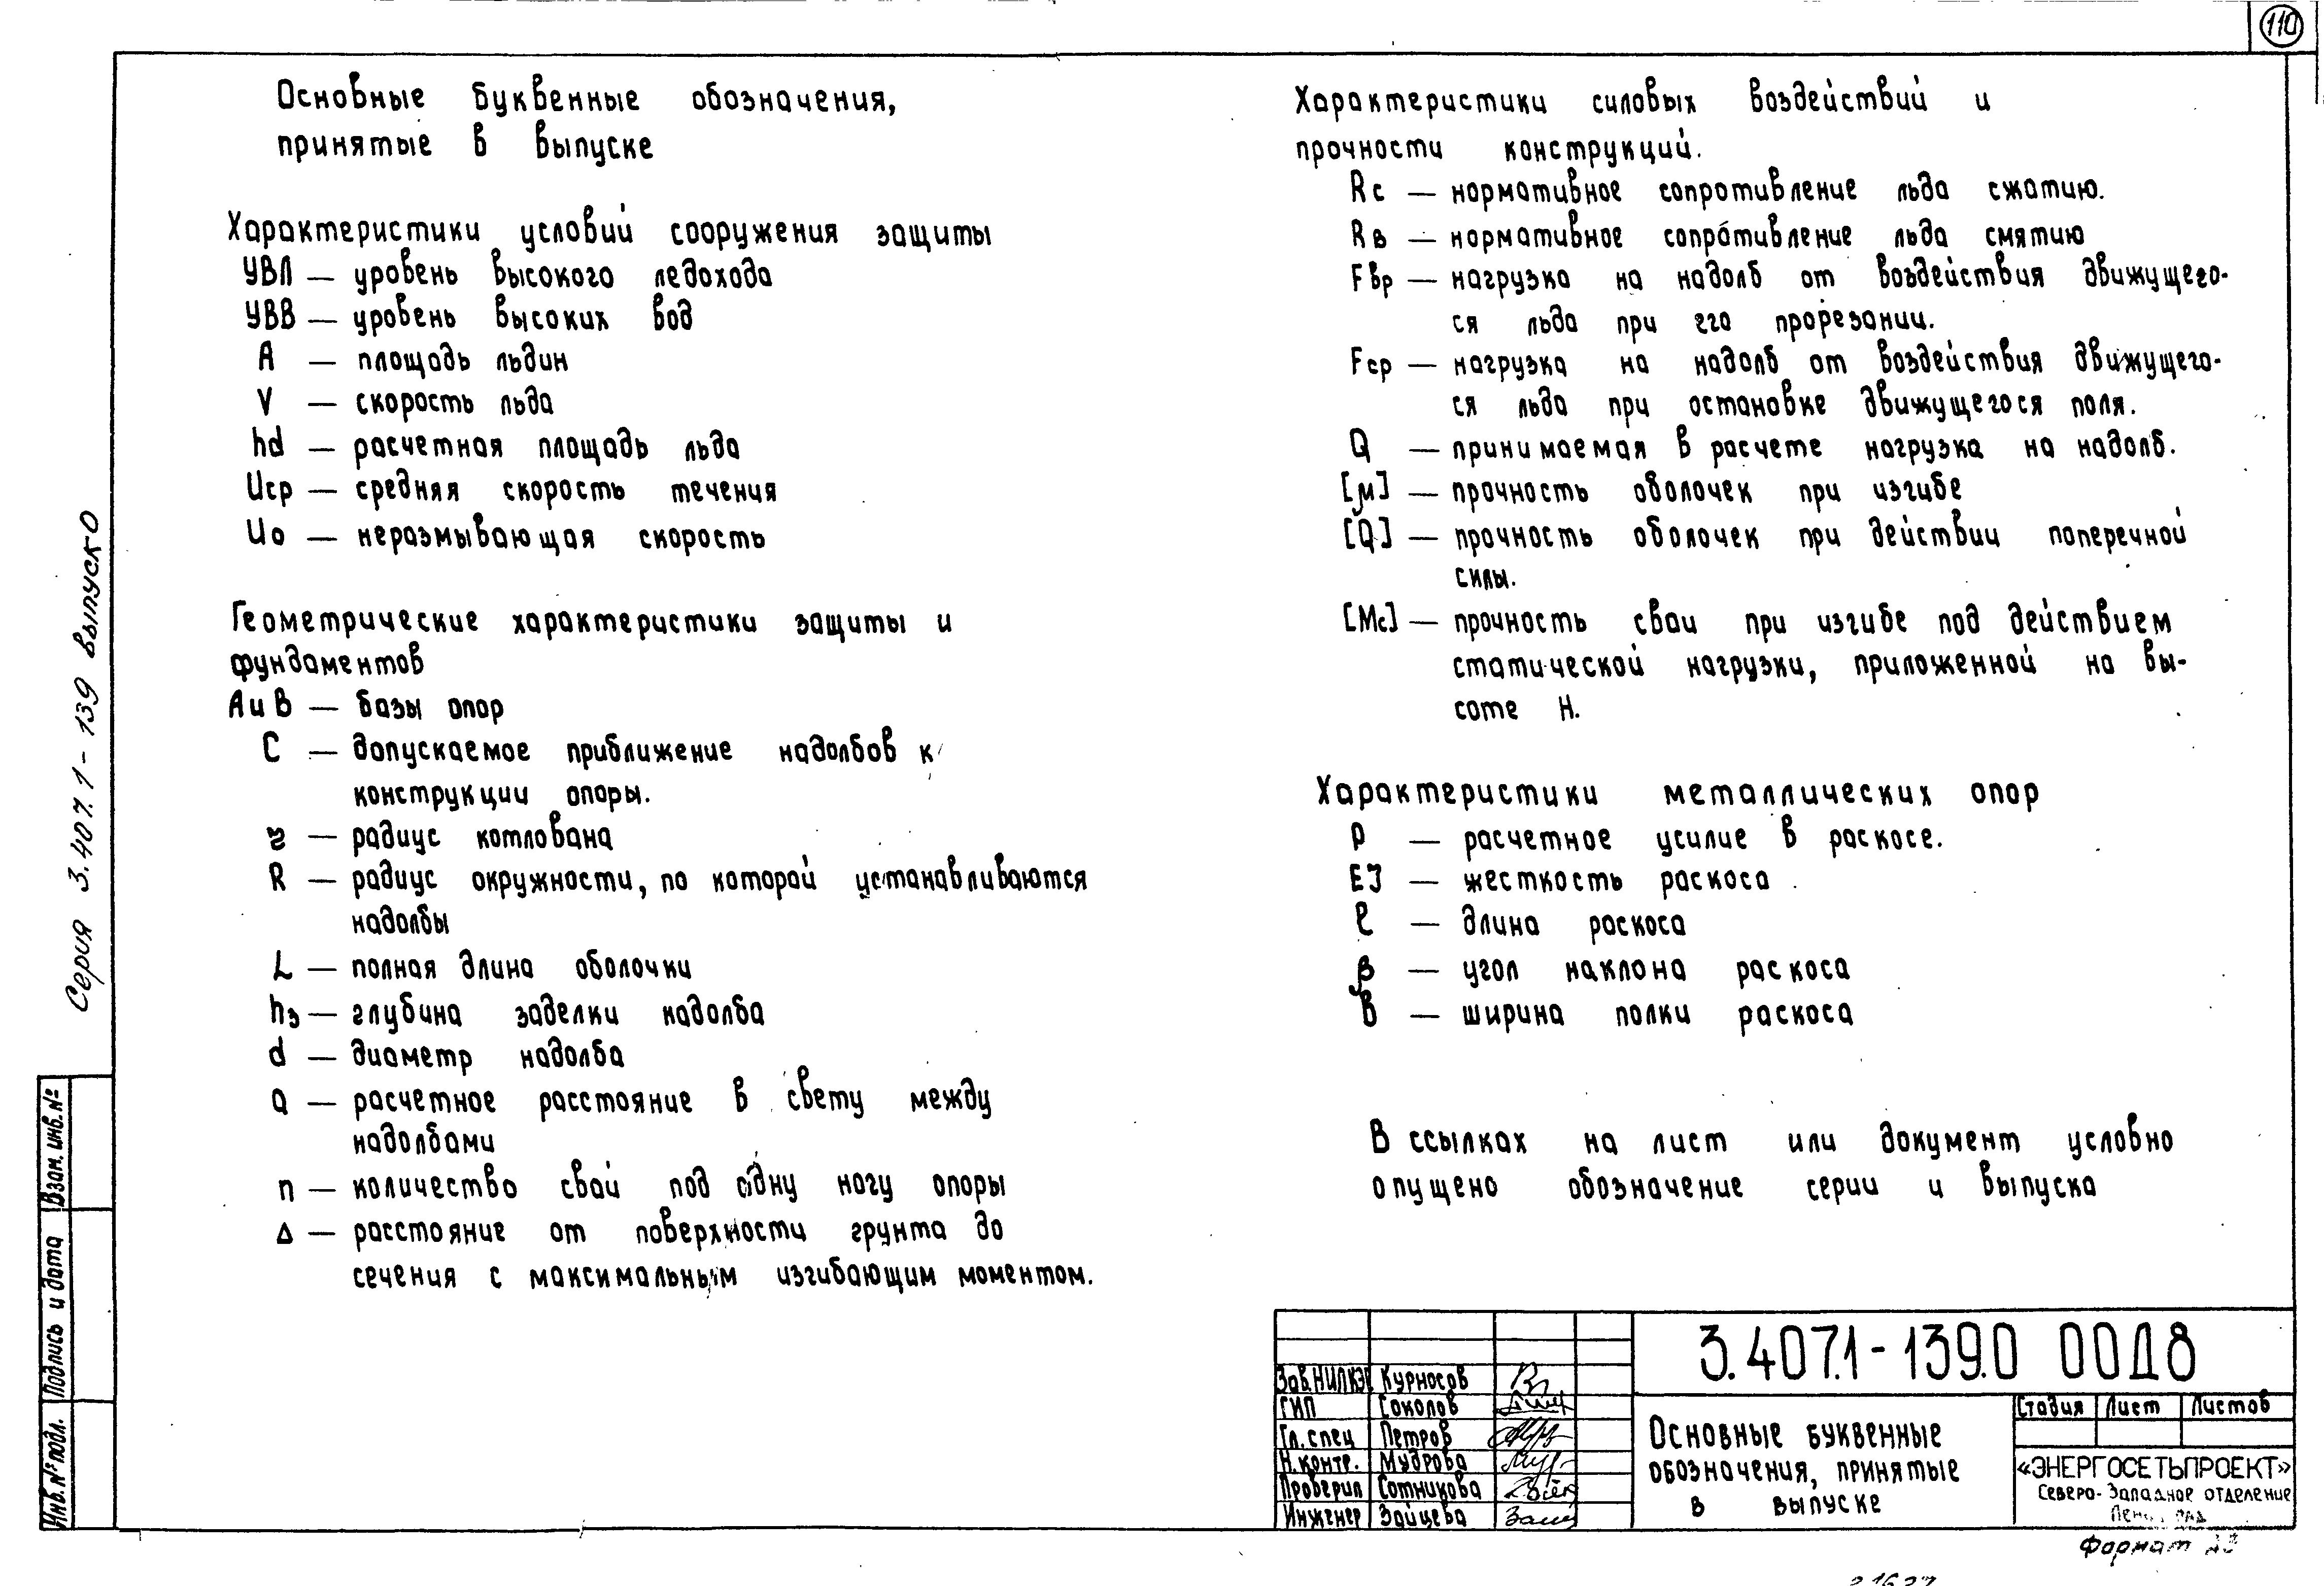 110
Основные буквенные обозначения,
принятые в выпуске
Характеристики условий сооружения защиты
УВЛ — уровень высокого ледохода
УВВ — уровень высоких вод
А — площадь льдин
V — скорость льда
hd — расчетная площадь льда
Uср — средняя скорость течения
Uо — неразмывающая скорость
Геометрические характеристики защиты и
фундаментов
А и В — базы опор
С — допускаемое приближение надолбов к
конструкции опоры.
r — радиус котлована
R — радиус окружности, по которой устанавливаются
надолбы
L — полная длина оболочки
hз — глубина заделки надолба
d — диаметр надолба
a — расчетное расстояние в свету между
надолбами
n — количество свай под одну ногу опоры
Δ — расстояние от поверхности грунта до
сечения с максимальным изгибающим моментом.
Характеристики силовых воздействий и
прочности конструкций.
Rc — нормативное сопротивление льда сжатию.
Rв — нормативное сопротивление льда смятию
Fвр — нагрузка на надолб от воздействия движущего-
ся льда при его прорезании.
Fср — нагрузка на надолб от воздействия движущего-
ся льда при остановке движущегося поля.
Q — принимаемая в расчете нагрузка на надолб.
[м] — прочность оболочек при изгибе
[Q] — прочность оболочек при действии поперечной
силы.
[Мс] — прочность сваи при изгибе под действием
статической нагрузки, приложенной на вы-
соте Н.
Характеристики металлических опор
Р — расчетное усилие в раскосе.
EJ — жесткость раскоса
ℓ — длина раскоса
β — угол наклона раскоса
в — ширина полки раскоса
В ссылках на лист или документ условно
опущено обозначение серии и выпуска
Серия 3.407.1-139 выпуск 0
Взам. инв. №
Подпись и дата
Инв. № подл.
3.407.1-139.0 00Д8
Зав.НИЛКЭС Курносов
ГИП Соколов
Гл. спец Петров
Н.контр. Мудрова
Проверил Сотникова
Инженер Зайцева
Основные буквенные
обозначения, принятые
в выпуске
Стадия Лист Листов
«ЭНЕРГОСЕТЬПРОЕКТ»
Северо-Западное отделение
Формат А3